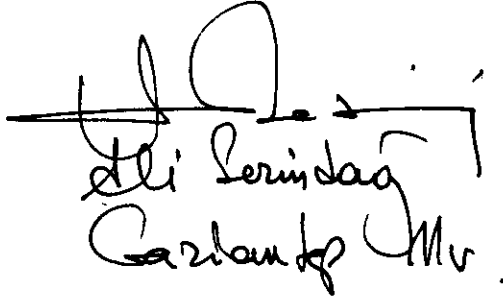 Ali Serindağ
Gaziantep Mv.